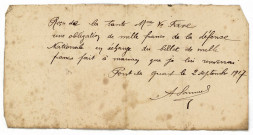 Reçu de la tante Mme Vve Favre
une obligation de mille francs de la défense
Nationale en échange du billet de mille
francs fait à mamey que je lui
Pont de le 2 septembre 1917